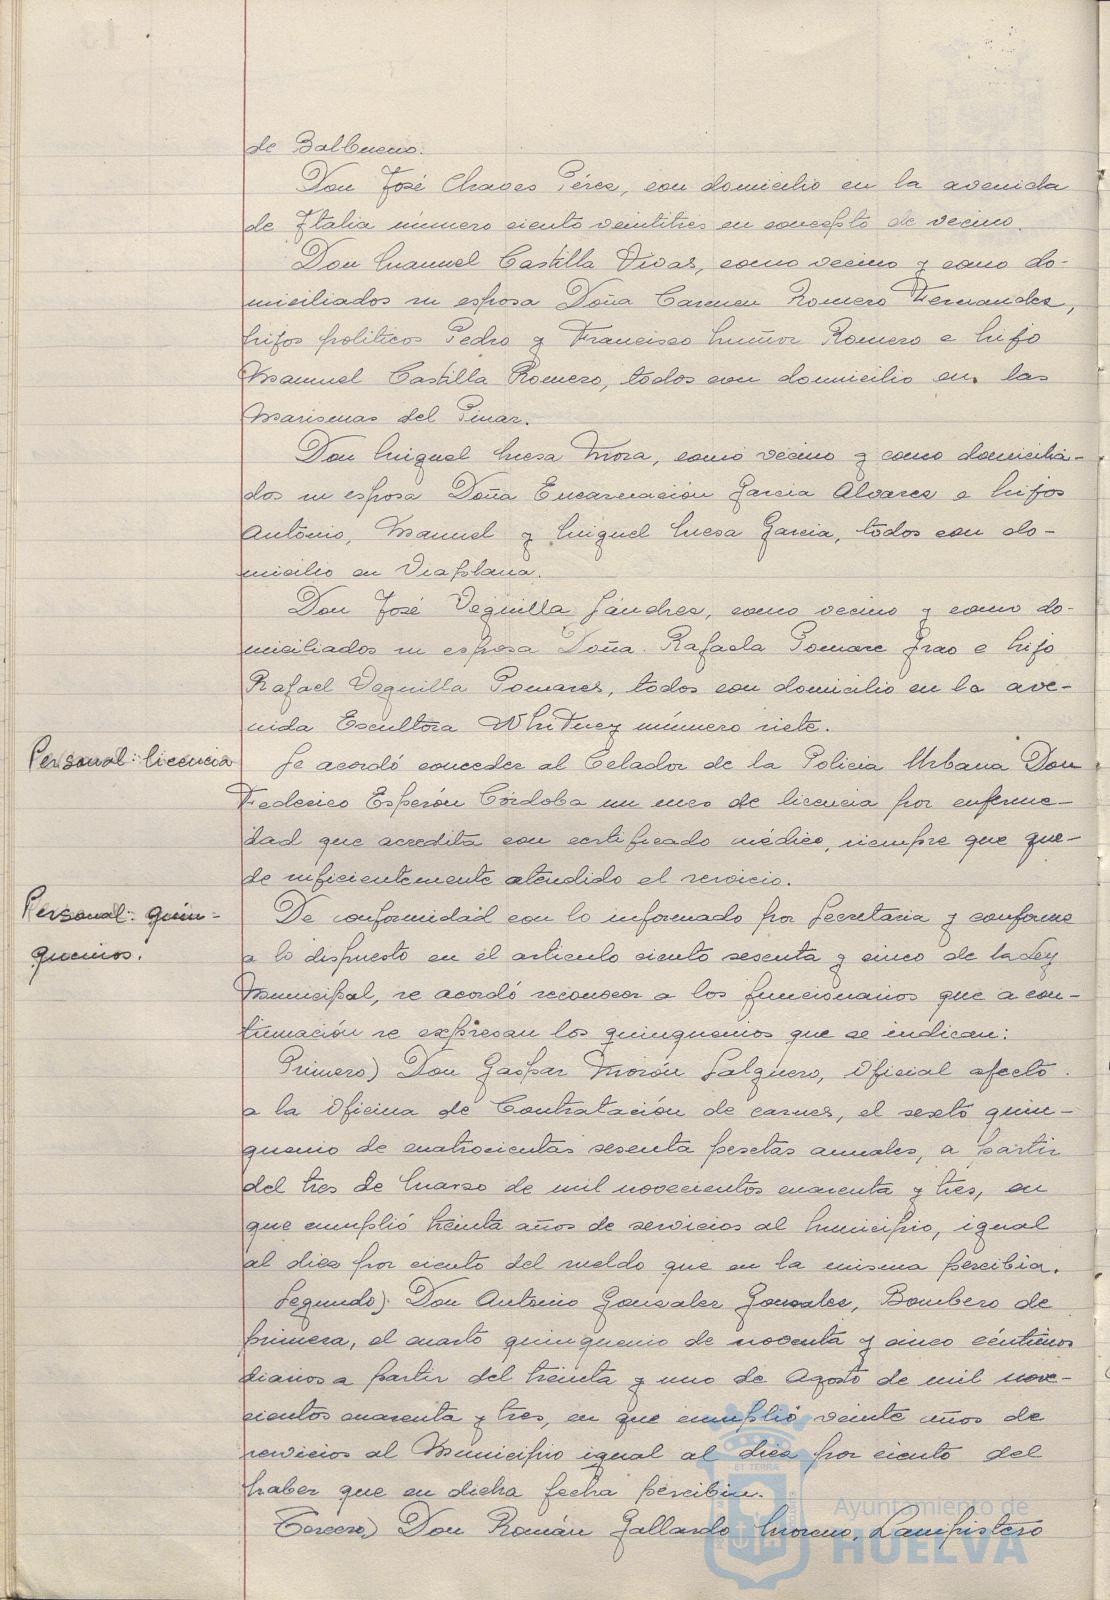 de Balbueno.
Don José Chaves Pérez, con domicilio en la avenida
de Italia número ciento veintitres en concepto de vecino.
Don Manuel Castilla Vivas, como vecino y como do-
miciliados su esposa Doña Carmen Romero Fernandez,
hijos politicos Pedro y Francisco Muñoz Romero e hijo
Manuel Castilla Romero, todos con domicilio en las
Marismas del Pinar.
Don Miguel Mesa Mora, como vecino y como domicilia-
dos su esposa Doña Encarnación Garcia Alvarez e hijos
Antonio, Manuel y Miguel Mesa Garcia, todos con do-
micilio en Viaplana.
Don José Veguilla Sánchez, como vecino y como do-
miciliados su esposa Doña Rafaela Pomare Grao e hijo
Rafael Veguilla Pomares, todos con domicilio en la ave-
nida Escultora Whitney número siete.
Personal: licencia
Se acordó conceder al Celador de la Policia Urbana Don
Federico Esperón Córdoba un mes de licencia por enferme-
dad que acredita con certificado médico, siempre que que-
de suficientemente atendido el servicio.
Personal: quin-
quenios.
De conformidad con lo informado por Secretaria y conforme
a lo dispuesto en el articulo ciento sesenta y cinco de la Ley
Municipal, se acordó reconocer a los funcionarios que a con-
tinuación se expresan los quinquenios que se indican:
Primero) Don Gaspar Morón Salguero, Oficial afecto
a la Oficina de Contratación de carnes, el sexto quin-
quenio de cuatrocientas sesenta pesetas anuales, a partir
del tres de Marzo de mil novecientos cuarenta y tres, en
que cumplió treinta años de servicios al Municipio, igual
al diez por ciento del sueldo que en la misma percibia.
Segundo) Don Antonio Gonzalez Gonzalez, Bombero de
primera, el cuarto quinquenio de noventa y cinco céntimos
diarios a partir del treinta y uno de Agosto de mil nove-
cientos cuarenta y tres, en que cumplió veinte años de
servicios al Municipio igual al diez por ciento del
haber que en dicha fecha percibia.
Tercero) Don Román Gallardo Moreno, Lampistero
ET TERRA
Ayuntamiento de
HUELVA